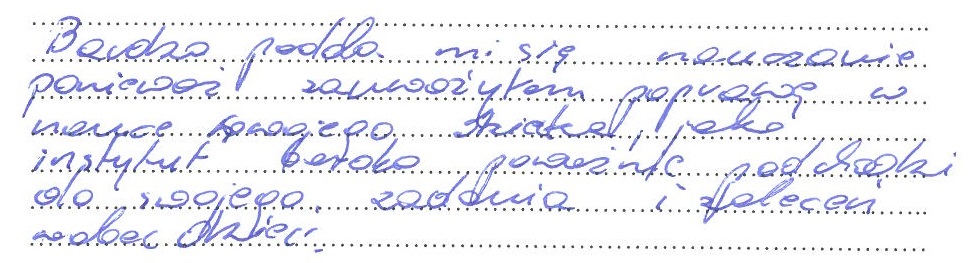 Bardzo podoba mi się nauczanie
ponieważ zauważyłem poprawę w
nauce swojego dziecka, jako
instytut bardzo poważnie podchodzi
do swojego zadania i zaleceń
wobec dzieci.